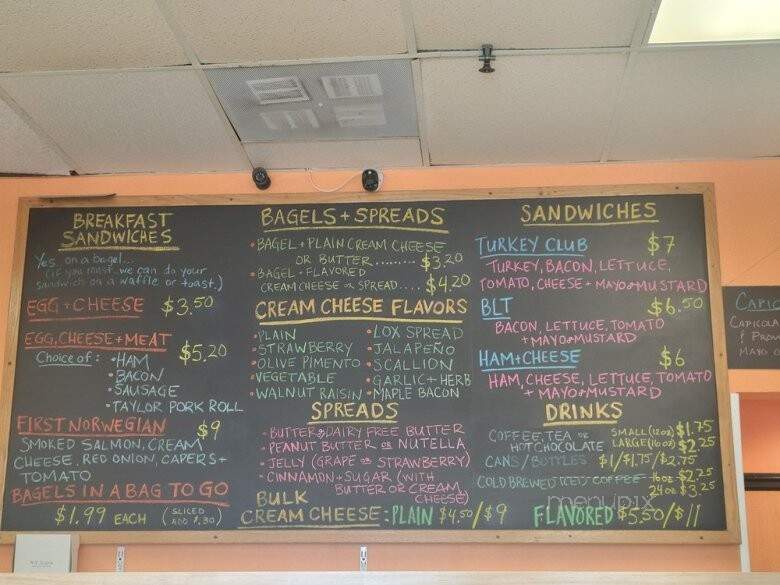 BREAKFAST
SANDWICHES
Yes on a bagel...
(if you must..we can do your
sandwich on a waffle or toast.)
EGG + CHEESE $3.50
EGG, CHEESE + MEAT
$5.20
Choice of: • HAM
• BACON
• SAUSAGE
• TAYLOR PORK ROLL
FIRST NORWEGIAN
$9
SMOKED SALMON, CREAM
CHEESE, RED ONION, CAPERS +
TOMATO
BAGELS IN A BAG TO GO
$1.99 EACH (SLICED
ADD
BAGELS + SPREADS
• BAGEL + PLAIN CREAM CHEESE
OR BUTTER......... $3.20
• BAGEL + FLAVORED
CREAM CHEESE OR SPREAD.... $4.20
CREAM CHEESE FLAVORS
• PLAIN
• STRAWBERRY
• OLIVE PIMENTO
• VEGETABLE
• WALNUT RAISIN
• LOX SPREAD
• JALAPEÑO
• SCALLION
• GARLIC + HERB
• MAPLE BACON
SPREADS
• BUTTER OR DAIRY FREE BUTTER
• PEANUT BUTTER OR NUTELLA
• JELLY (GRAPE OR STRAWBERRY)
• CINNAMON + SUGAR (WITH
BUTTER OR CREAM
CHEESE)
BULK
CREAM CHEESE: PLAIN $4.50/$9 FLAVORED $5.50/$11
SANDWICHES
TURKEY CLUB $7
TURKEY, BACON, LETTUCE,
TOMATO, CHEESE + MAYO OR MUSTARD
BLT $6.50
BACON, LETTUCE, TOMATO
+ MAYO OR MUSTARD
HAM + CHEESE $6
HAM, CHEESE, LETTUCE, TOMATO
+ MAYO OR MUSTARD
DRINKS
COFFEE, TEA OR SMALL (12 oz) $1.75
HOT CHOCOLATE LARGE (16 oz) $2.25
CANS / BOTTLES $1/$1.75/$2.75
COLD BREWED ICED COFFEE 16oz $2.25
24oz $3.25
menupix
CAPIC
CAPICOLA
PROV
MAYO